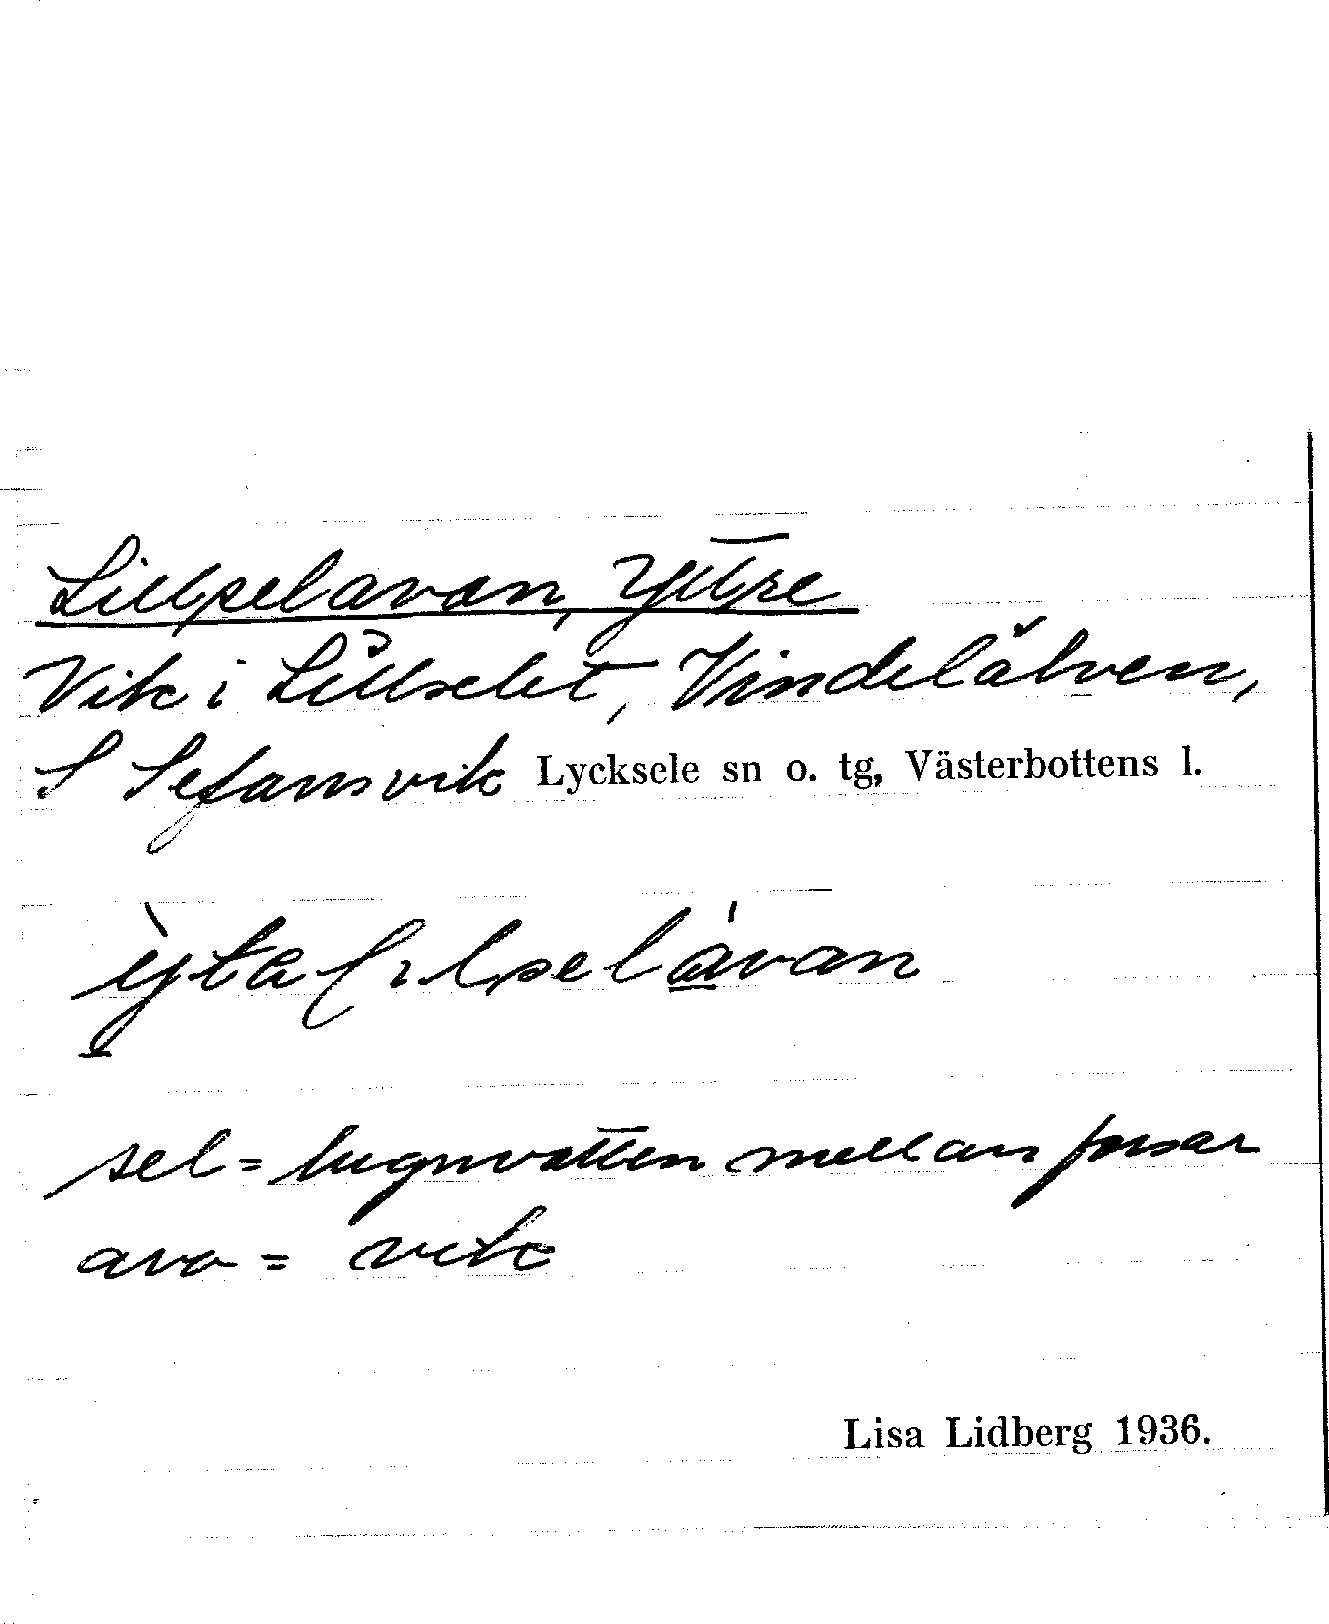 Lillselavan, Yttre
Vik i Lillselet, Vindelälven,
S Sefansvik Lycksele sn o. tg, Västerbottens l.
sel = lugnvatten mellan forsar
ava = vik
Lisa Lidberg 1936.